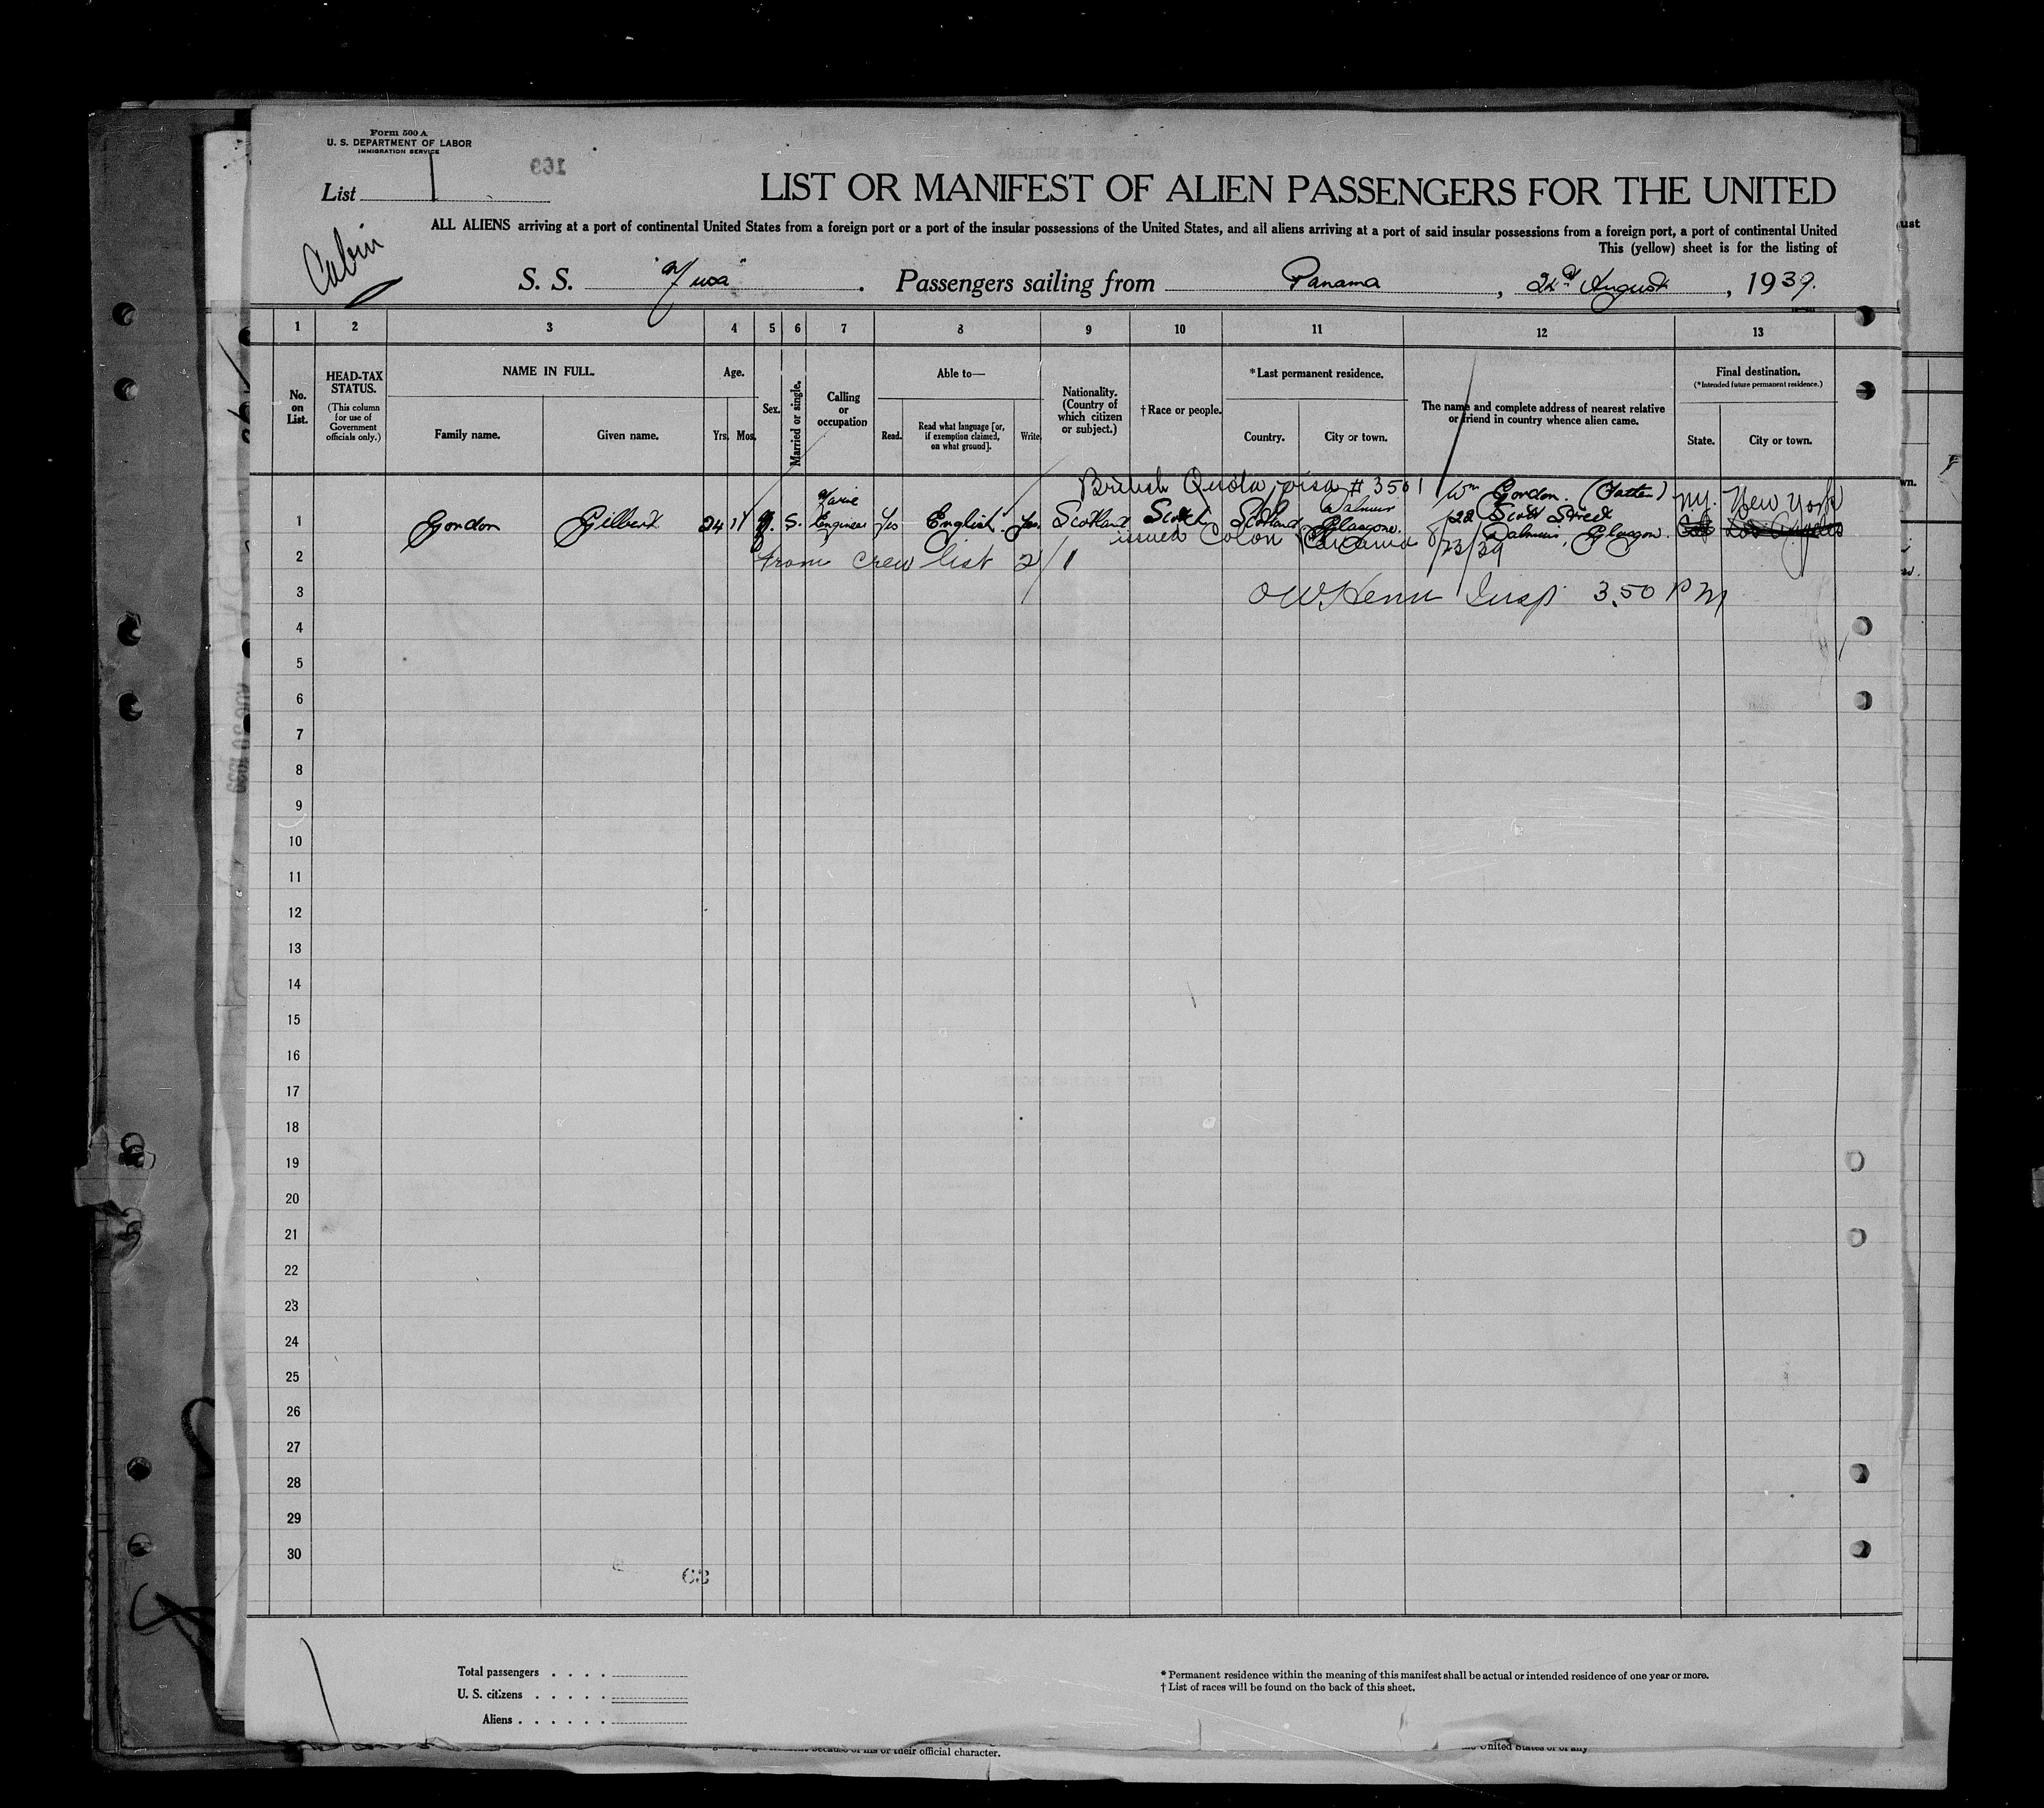 Form 500 A
U. S. DEPARTMENT OF LABOR
IMMIGRATION SERVICE
List 1
169
LIST OR MANIFEST OF ALIEN PASSENGERS FOR THE UNITED
ALL ALIENS arriving at a port of continental United States from a foreign port or a port of the insular possessions of the United States, and all aliens arriving at a port of said insular possessions from a foreign port, a port of continental United
This (yellow) sheet is for the listing of
Cabin
S. S. "Musa". Passengers sailing from Panama, 24th August, 1939.
1 2 3 4 5 6 7 8 9 10 11 12 13
No. on List.
HEAD-TAX STATUS.
(This column for use of Government officials only.)
NAME IN FULL.
Family name. Given name.
Age.
Yrs. Mos.
Sex.
Married or single.
Calling or occupation
Able to—
Read. Read what language [or, if exemption claimed, on what ground]. Write.
Nationality. (Country of which citizen or subject.)
† Race or people.
* Last permanent residence.
Country. City or town.
The name and complete address of nearest relative or friend in country whence alien came.
Final destination.
(* Intended future permanent residence.)
State. City or town.
British Quota visa # 3501
1 Gordon Gilbert 24 11 M. S. Marine Engineer Yes English. Yes. Scotland Scotch Scotland Dalmuir Glasgow. Wm Gordon. (Father) 22 Scott Street Dalmuir, Glasgow. N.Y. New York
Cal Los Angeles
issued Colon Panama 8/23/39
2 from crew list 2/1
3 Insp 3.50 PM
4
5
6
7
8
9
10
11
12
13
14
15
16
17
18
19
20
21
22
23
24
25
26
27
28
29
30
63
Total passengers . . . .
U. S. citizens . . . . .
Aliens . . . . . .
* Permanent residence within the meaning of this manifest shall be actual or intended residence of one year or more.
† List of races will be found on the back of this sheet.
because of his or their official character.
United States or of any